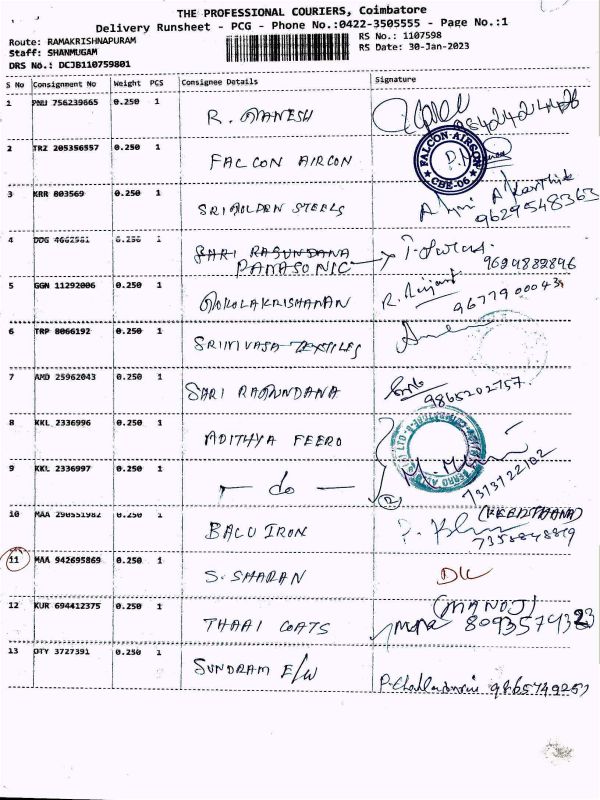 THE PROFESSIONAL COURIERS, Coimbatore
Delivery Runsheet - PCG - Phone No.:0422-3505555 - Page No.:1
Route: RAMAKRISHNAPURAM
RS No.: 1107598
Staff: SHANMUGAM
RS Date: 30-Jan-2023
DRS No.: DCJB110759801
S No Consignment No Weight PCS Consignee Details Signature
1 PNU 756239665 0.250 1 R. GANESH
2 TRZ 205356557 0.250 1 FALCON AIRCON
FALCON-AIRCON
CBE-06
3 KRR 803569 0.250 1 SRI GOLDEN STEELS 9629548363
4 DDG 4662581 0.250 1 SHRI RAGUNDANA
PANASONIC 9694882896
5 GGN 11292006 0.250 1 GOKOLAKRISHANAN
6 TRP 8066192 0.250 1 SRINIVASA TEXTILES
7 AMD 25962043 0.250 1 SHRI RAGUNDANA 9865202757
8 KKL 2336996 0.250 1 ADITHYA FEERO
9 KKL 2336997 0.250 1 — do — 7373722102
10 MAA 290551982 0.250 1 BALU IRON (KEERTHANA)
11 MAA 942695869 0.250 1 S. SHARAN D/C
12 KUR 694412375 0.250 1 THAAI COATS (MANOJ)
13 OTY 3727391 0.250 1 SUNDRAM E/W